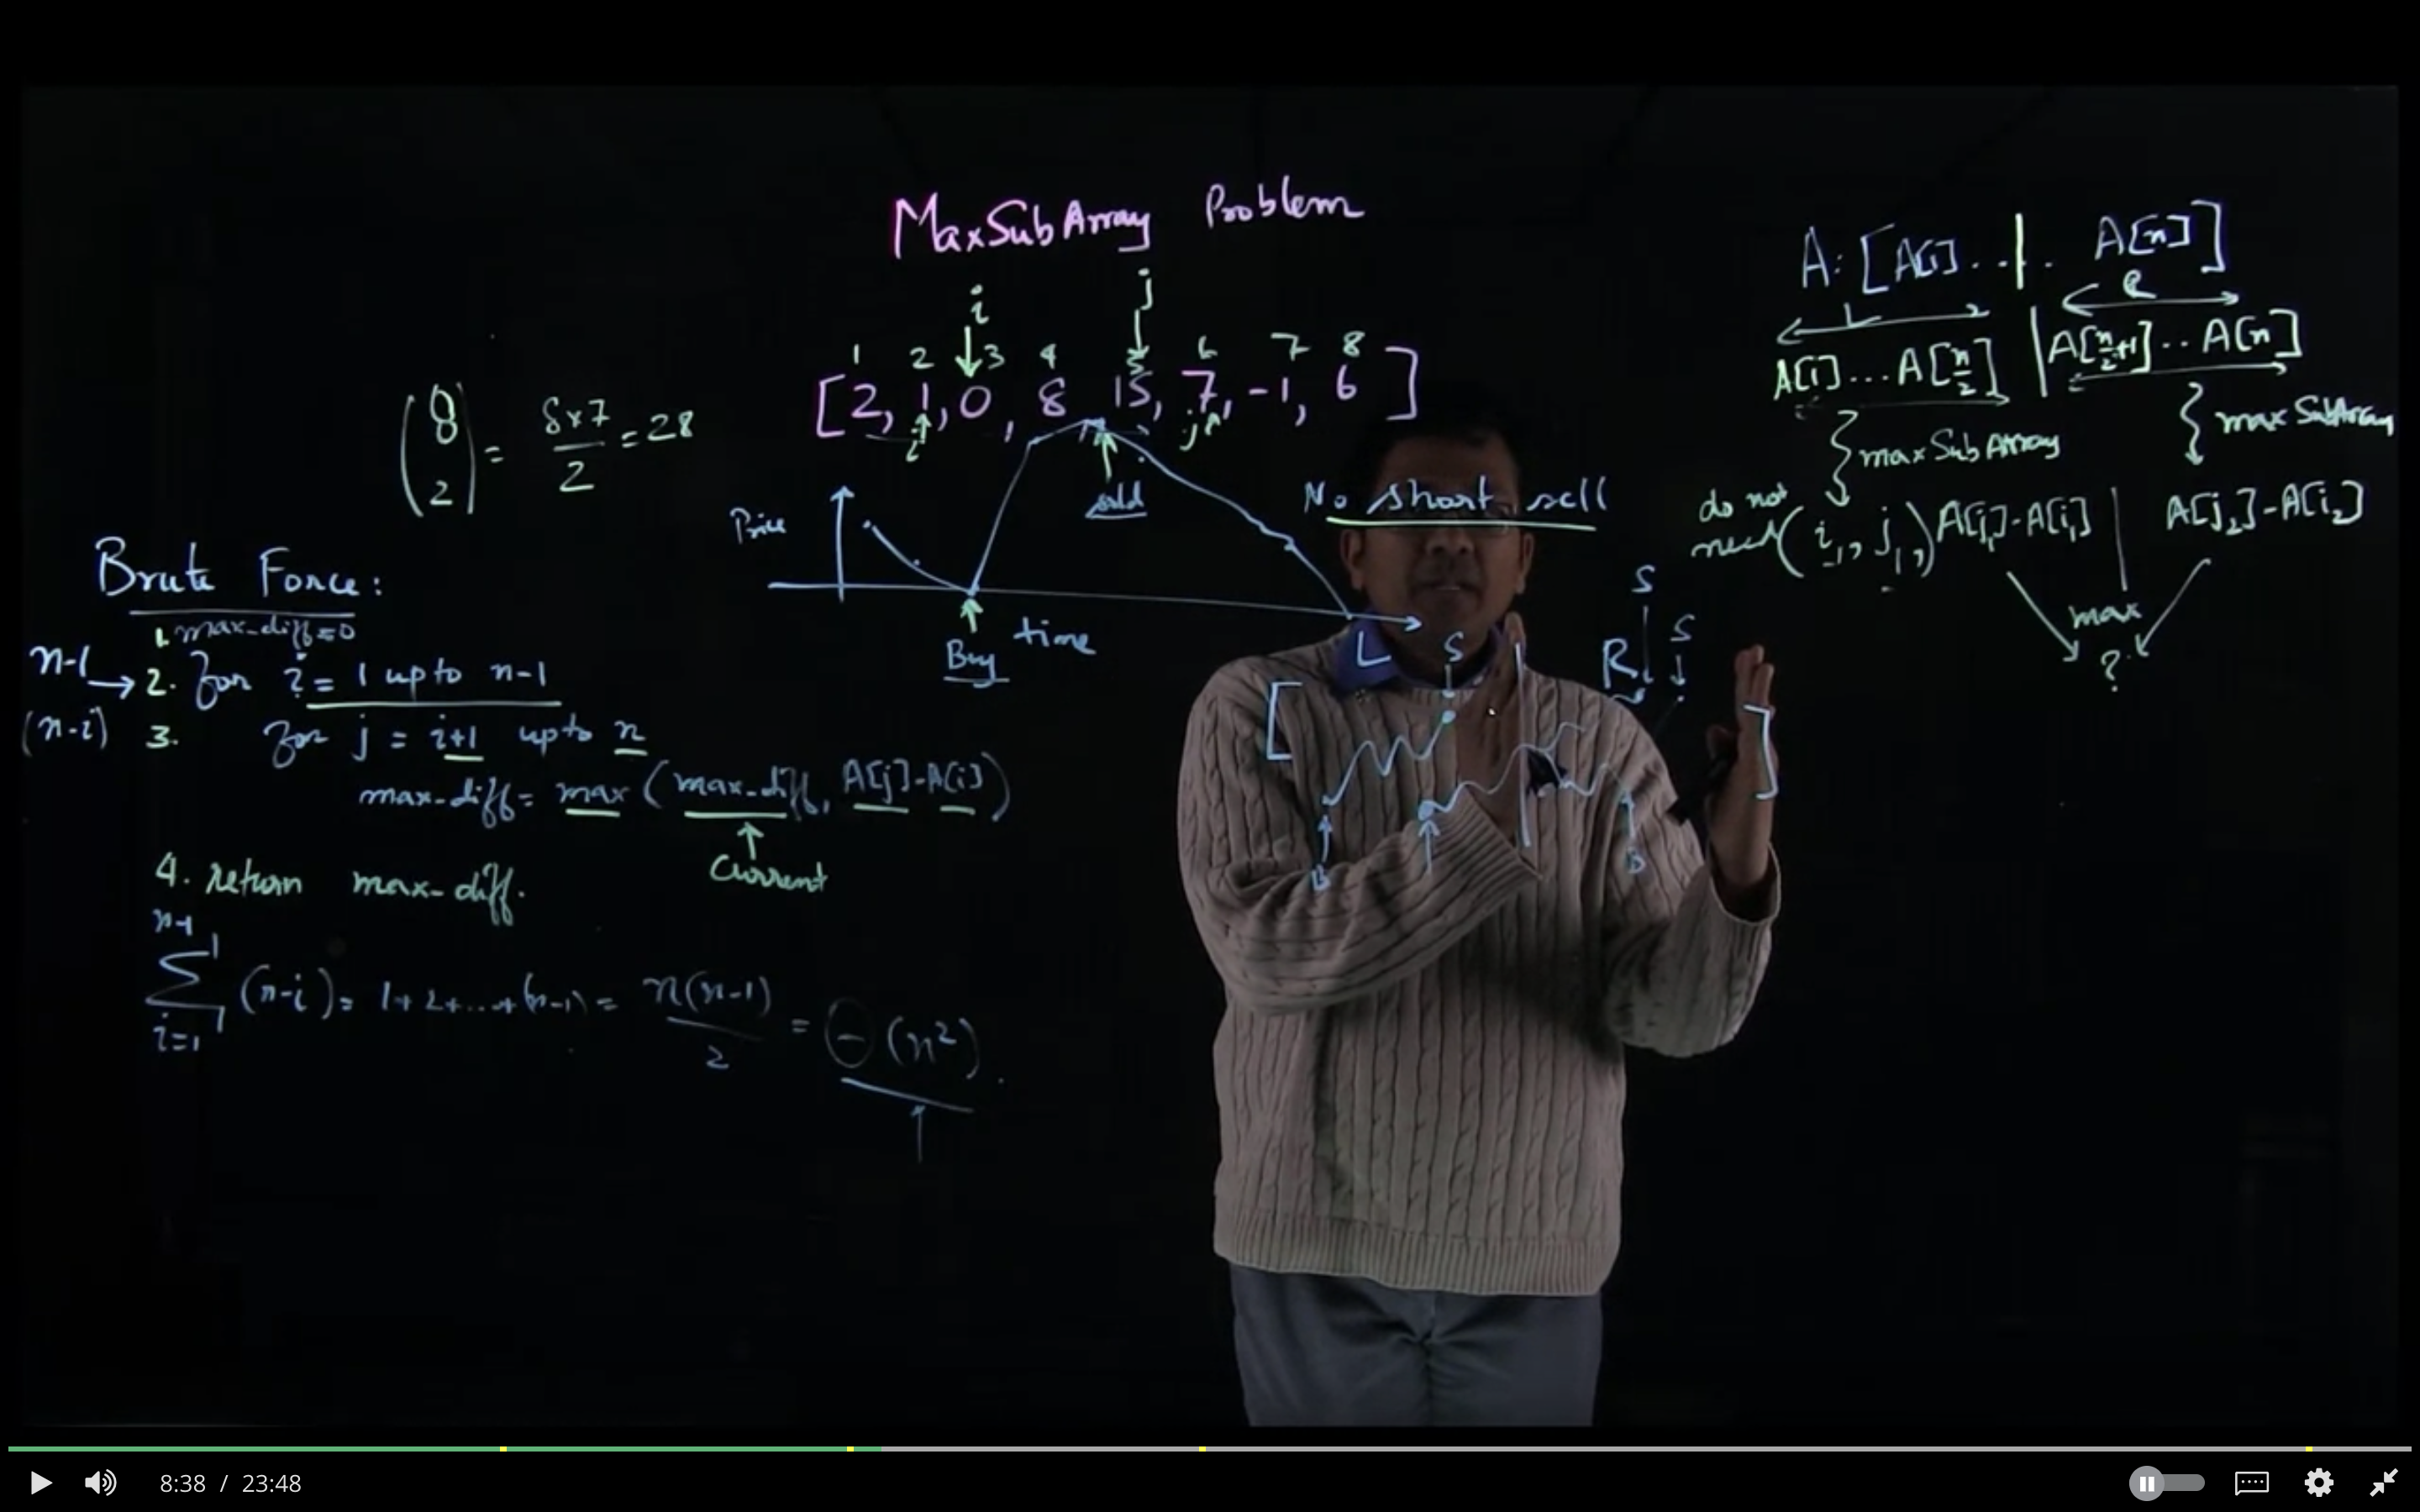 MaxSubArray Problem
i j
1 2 3 4 5 6 7 8
[2, 1, 0, 8, 15, 7, -1, 6]
i j
(8 2) = 8×7/2 = 28
Price
Buy
time
sold
No short sell
Brute Force:
1. max_diff=0
n-1 → 2. for i = 1 upto n-1
(n-i) 3. for j = i+1 upto n
max-diff = max (max_diff, A[j]-A[i])
Current
4. return max-diff.
n-1
∑ (n-i) = 1+2+...+(n-1) = n(n-1)/2 = Θ(n²).
i=1
L S R S S
[ ]
B
A: [A[1]...|. A[n]]
L R
A[1]...A[n/2] | A[n/2+1]..A[n]
maxSubArray maxSubArray
do not
need (i₁, j₁,) A[j₁]-A[i₁] | A[j₂]-A[i₂]
max
?
8:38 / 23:48